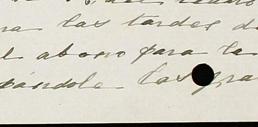 ra las tardes d
l abono para la
pándole las gra